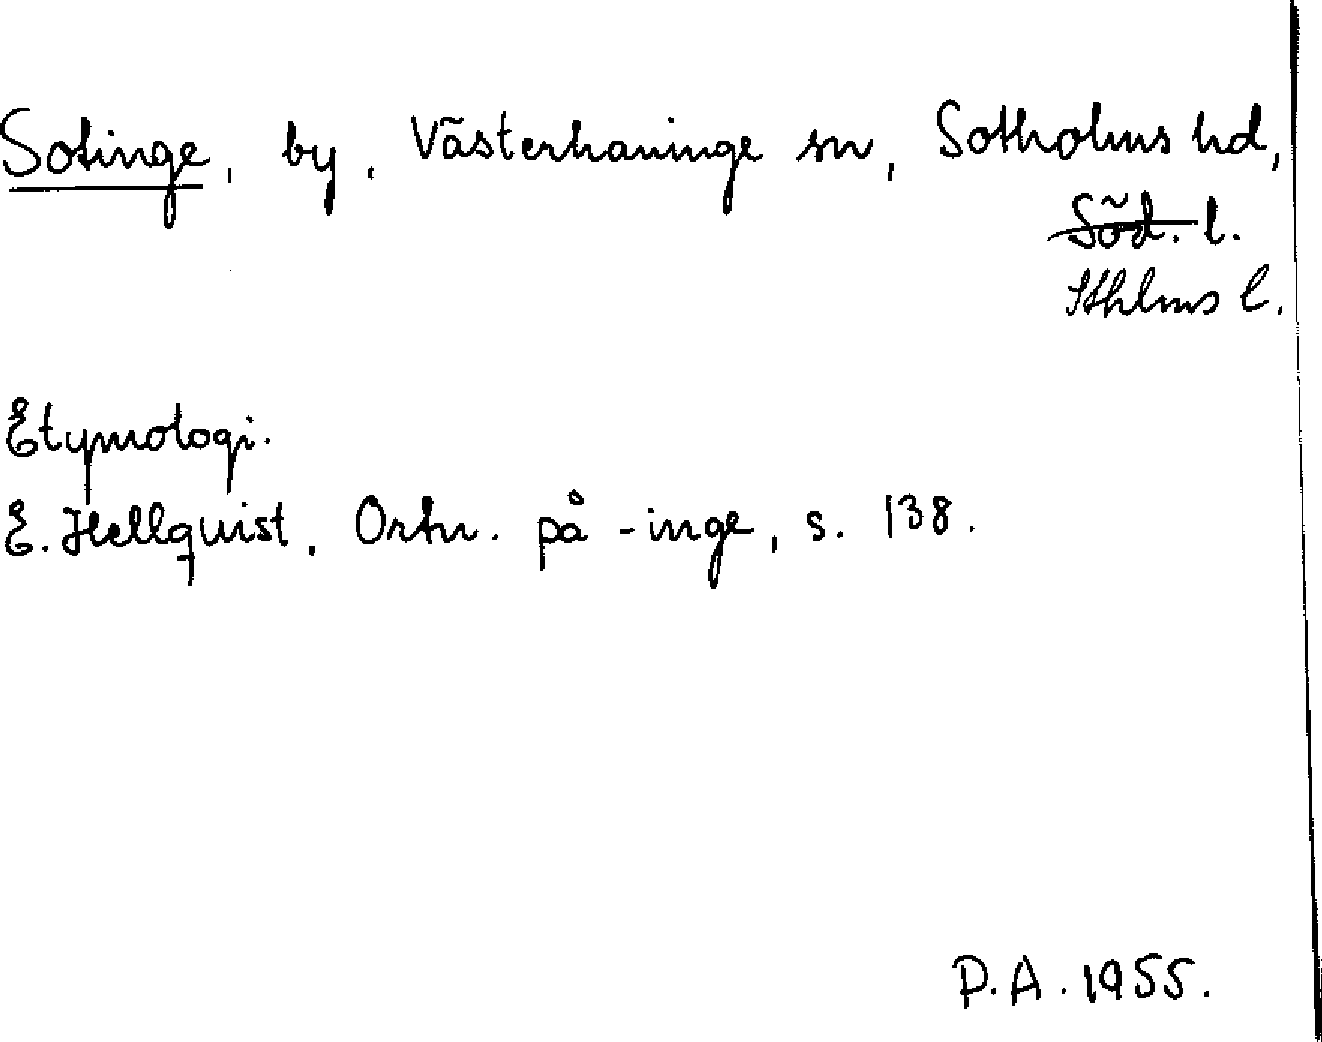 Sotinge, by, Västerhaninge sn, Sotholms hd,
Söd. l.
Sthlms l.
Etymologi.
E. Hellquist, Ortn. på -inge, s. 138.
P.A. 1955.